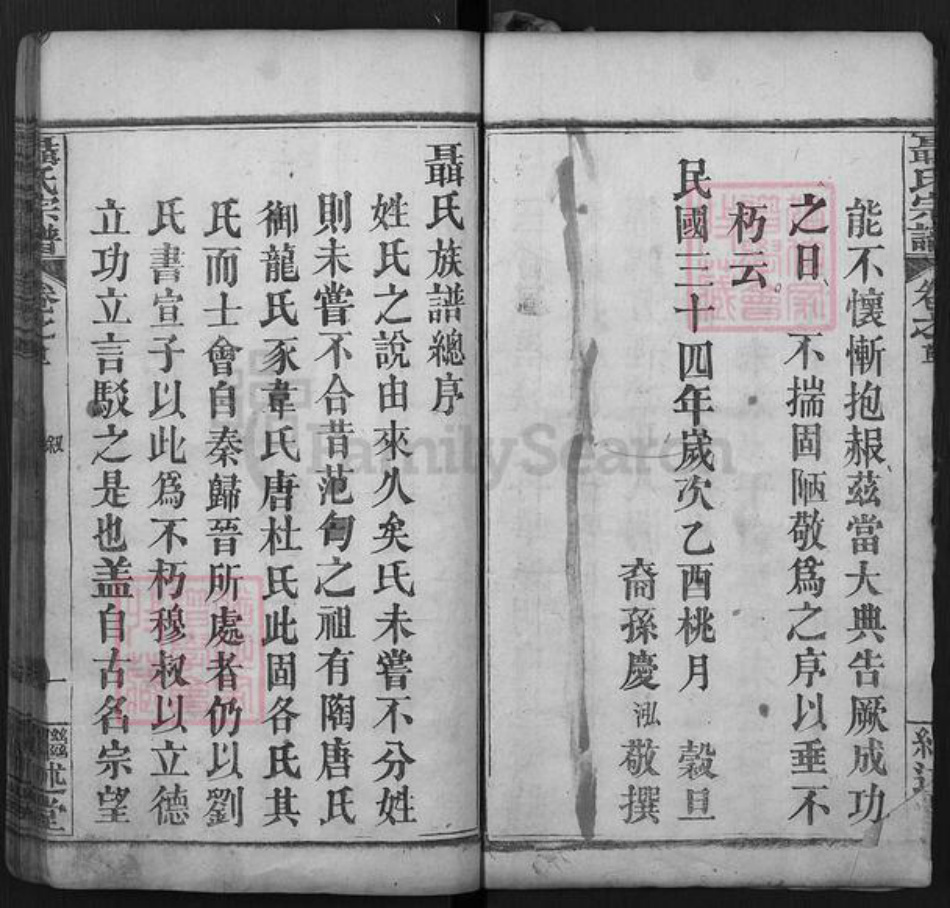 能不懷慚抱赧茲當大典告厥成功
之日不揣固陋敬爲之序以垂不
朽云
民國三十四年歲次乙酉桃月 穀旦
裔孫慶泓敬撰
聶氏族譜總序
姓氏之說由來久矣氏未嘗不分姓
則未嘗不合昔范匄之祖有陶唐氏
御龍氏豕韋氏唐杜氏此固各氏其
氏而士會自秦歸晉所處者仍以劉
氏書宣子以此爲不朽穆叔以立德
立功立言駁之是也盖自古名宗望
聶氏宗譜 卷之首 叙 一 繩述堂
FamilySearch